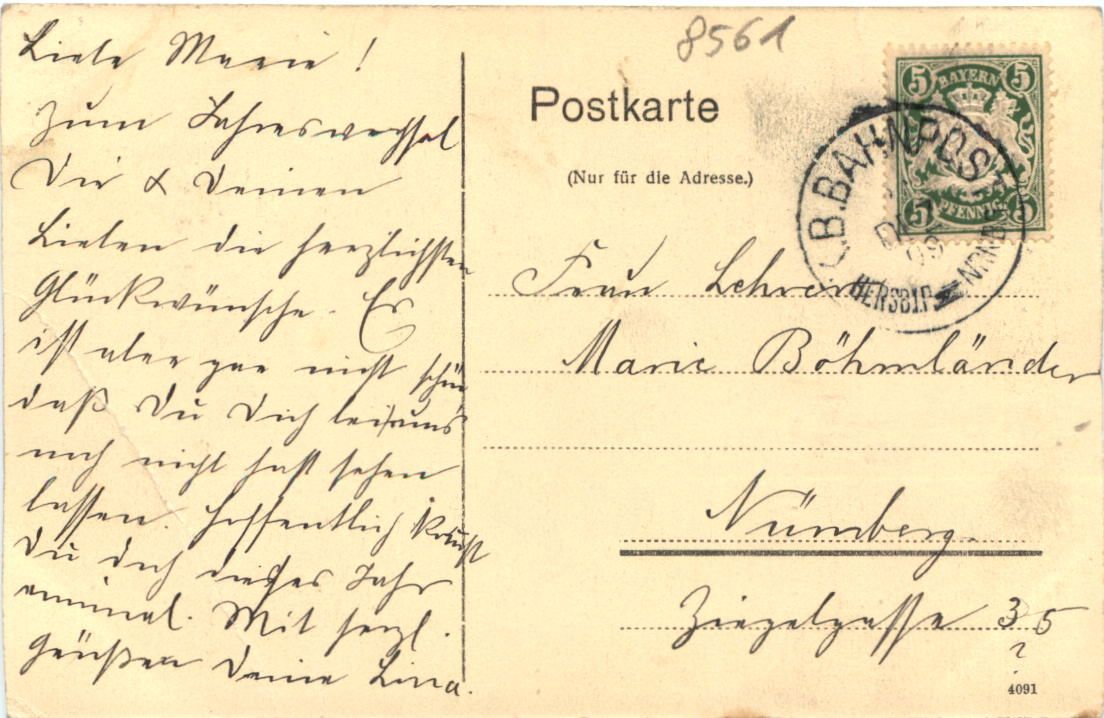 Liebe Marie!
Zum Jahreswechsel
Dir & Deinen
Lieben die herzlichsten
Glückwünsche. Es
ist aber gar nicht schön
daß Du Dich bei uns
noch nicht hast sehen
lassen. Hoffentlich kommst
Du doch dieses Jahr
einmal. Mit herzl.
Grüßen Deine Lina.
8561
Postkarte
(Nur für die Adresse.)
5 BAYERN 5
5 PFENNIG 5
K.B.BAHNPOST
09
Frau Lehrer
Marie Böhmländer
Nürnberg.
Ziegelgasse 35
?
4091